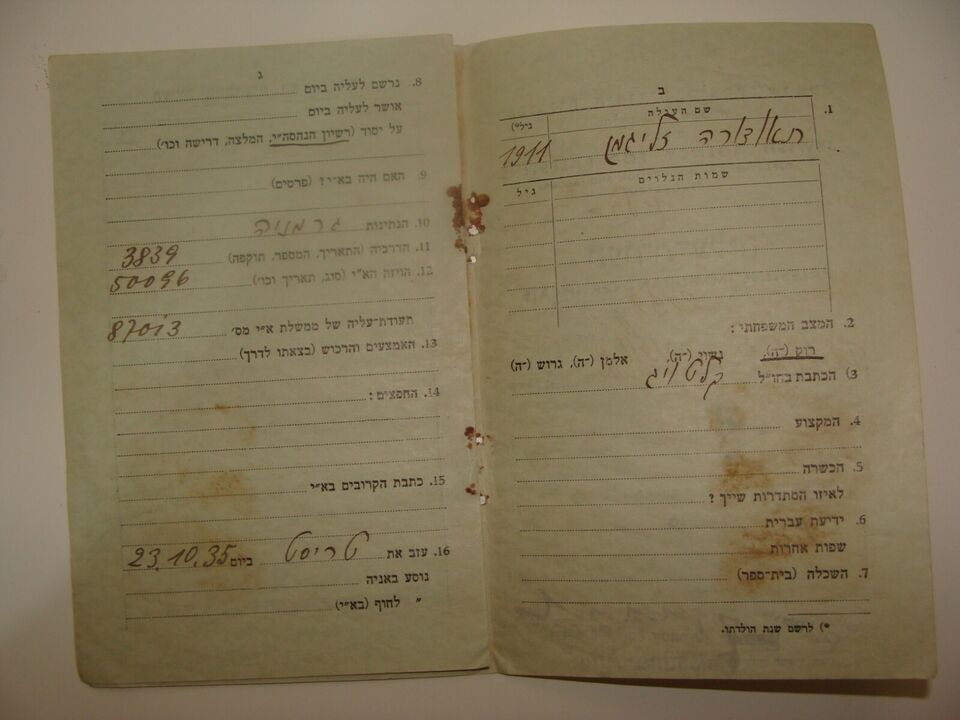 ב
1. שם העולה
גיל*)
תאודורה זליגמן
1911
שמות הנלוים
גיל
2. המצב המשפחתי:
רוק (־ה), נשוי (־ה), אלמן (־ה), גרוש (־ה)
3) הכתבת בחו"ל
4. המקצוע
5. הכשרה
לאיזו הסתדרות שייך?
6. ידיעת עברית
שפות אחרות
7. השכלה (בית־ספר)
*) לרשם שנת הולדתו.
ג
8. נרשם לעליה ביום
אושר לעליה ביום
על יסוד (רשיון הנהסה"י, המלצה, דרישה וכו')
9. האם היה בא־י? (פרטים)
10. הנתינות גרמניה
11. הדרכיה (התאריך, המספר, תוקפה) 3839
12. הויזה הא"י (סוג, תאריך וכו') 50096
תעודת־עליה של ממשלת א"י מס' 87013
13. האמצעים והרכוש (בצאתו לדרך)
14. החפצים:
15. כתבת הקרובים בא"י
16. עזב את טריסט ביום 23.10.35
נוסע באניה
" לחוף (בא"י)